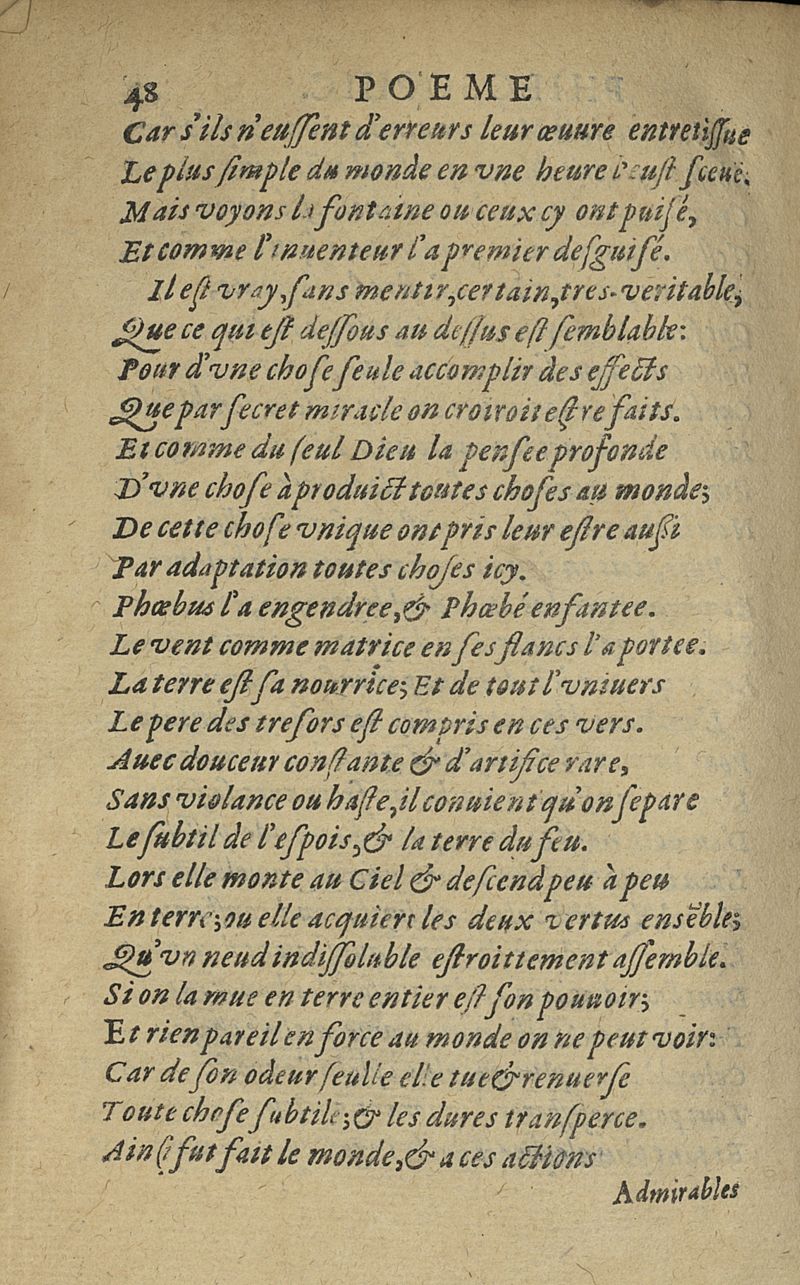 48 POEME
Car s'ils n'eussent d'erreurs leur œuure entretissue
Le plus simple du monde en vne heure l'eust sceuë.
Mais voyons la fontaine ou ceux cy ont puisé,
Et comme l'inuenteur l'a premier desguisé.
Il est vray, sans mentir, certain, tres-veritable,
Que ce qui est dessous au dessus est semblable:
Pour d'vne chose seule accomplir des effects
Que par secret miracle on croiroit estre faits.
Et comme du seul Dieu la pensee profonde
D'vne chose à produict toutes choses au monde;
De cette chose vnique ont pris leur estre aussi
Par adaptation toutes choses icy.
Phœbus l'a engendree, & Phœbé enfantee.
Le vent comme matrice en ses flancs l'a portee.
La terre est sa nourrice; Et de tout l'vniuers
Le pere des tresors est compris en ces vers.
Auec douceur constante & d'artifice rare,
Sans violance ou haste, il conuient qu'on separe
Le subtil de l'espois, & la terre du feu.
Lors elle monte au Ciel & descend peu à peu
En terre; ou elle acquiert les deux vertus ensẽble;
Qu'vn neud indissoluble estroittement assemble.
Si on la mue en terre entier est son pouuoir;
Et rien pareil en force au monde on ne peut voir:
Car de son odeur seulle elle tue & renuerse
Toute chose subtile; & les dures transperce.
Ainsi fut fait le monde, & a ces actions
Admirables